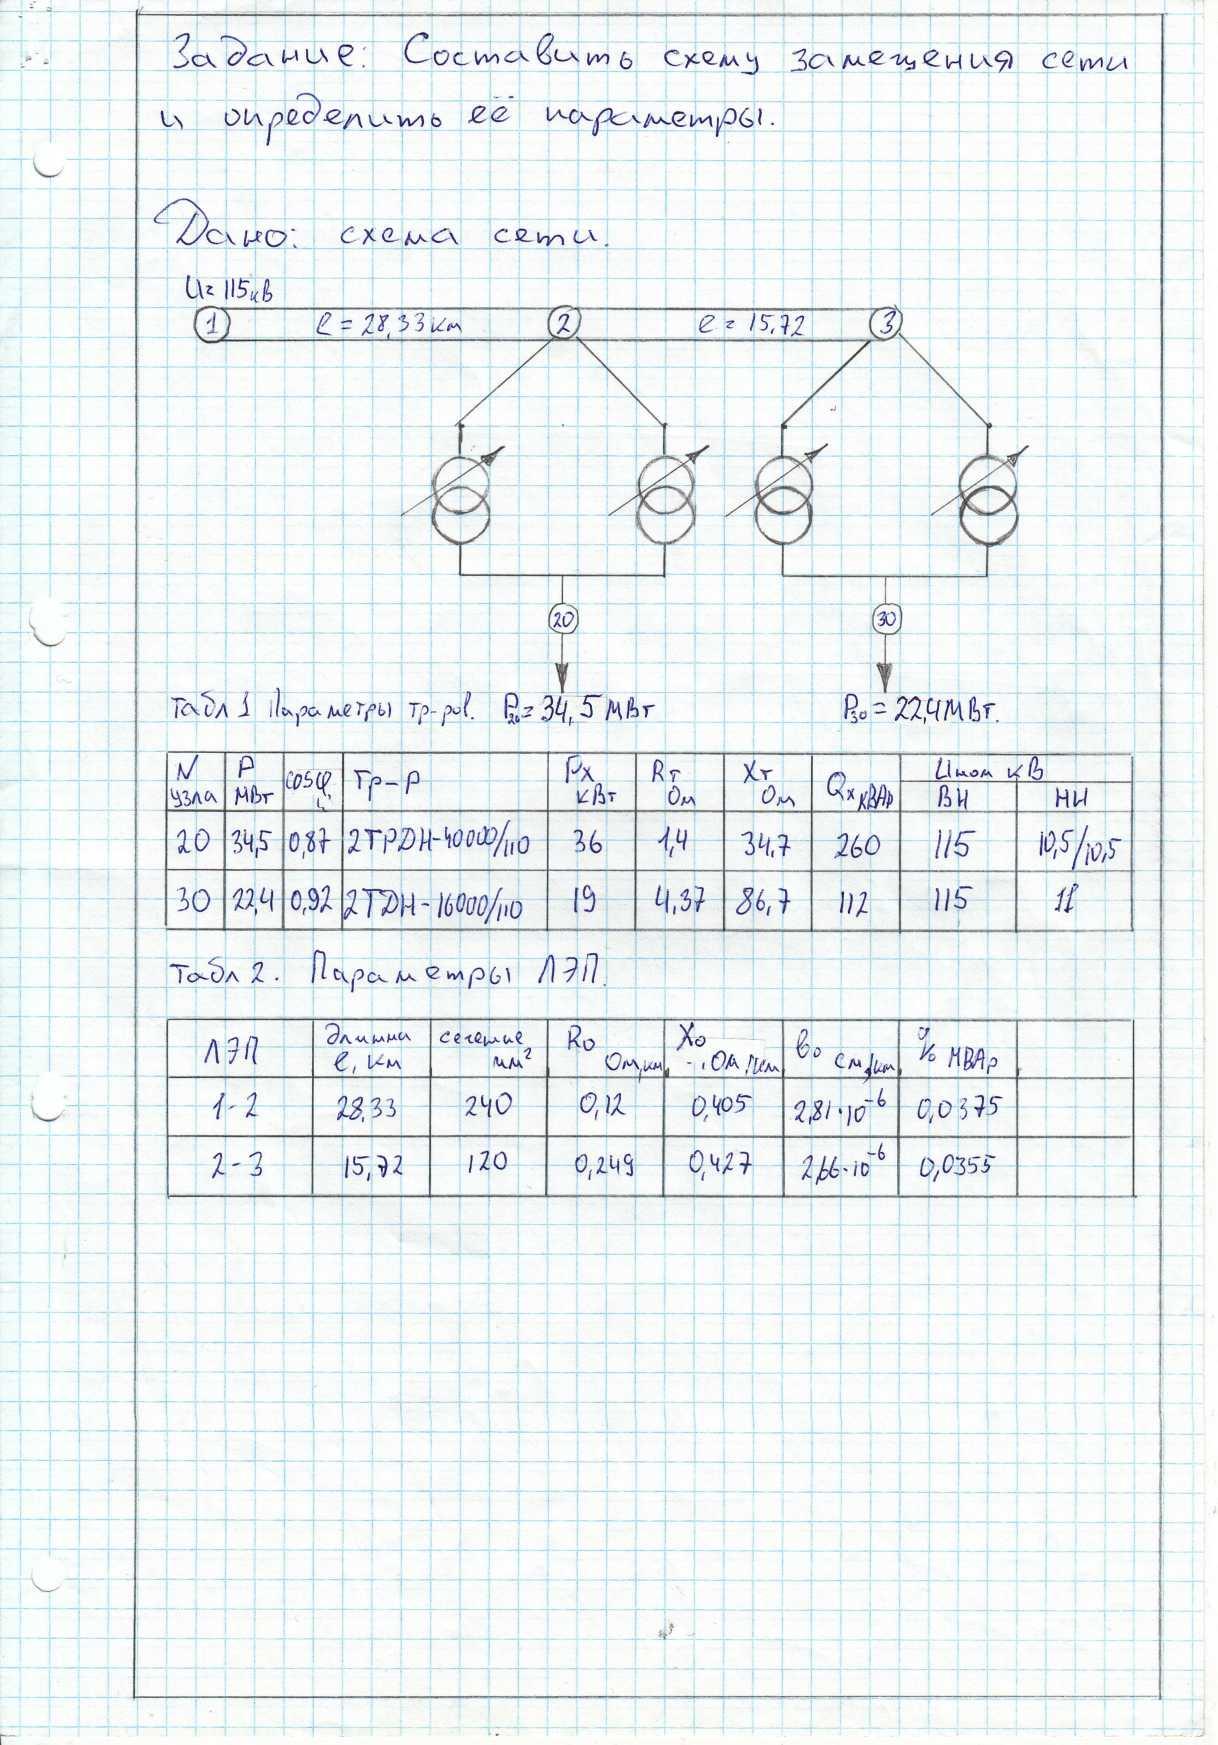 Задание: Составить схему замещения сети
и определить её параметры.
Дано: схема сети.
U=115кВ
1 ℓ=28,33км 2 ℓ=15,72 3
20 30
Табл 1 Параметры тр-ров. P20=34,5 МВт P30=22,4МВт.
N узла P МВт cosφ Тр-р Px кВт Rт Ом Xт Ом Qx кВАр Uном кВ ВН НН
20 34,5 0,87 2ТРДН-40000/110 36 1,4 34,7 260 115 10,5/10,5
30 22,4 0,92 2ТДН-16000/110 19 4,37 86,7 112 115 11
Табл 2. Параметры ЛЭП.
ЛЭП Длинна ℓ, км сечение мм² R0 Ом/км X0 Ом/км b0 см/км q0 МВАр
1-2 28,33 240 0,12 0,405 2,81·10⁻⁶ 0,0375
2-3 15,72 120 0,249 0,427 2,66·10⁻⁶ 0,0355